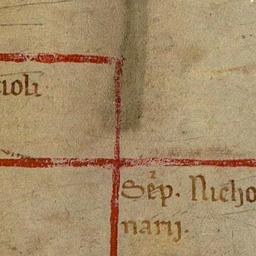 ioli
Sep. Nicho
narij.